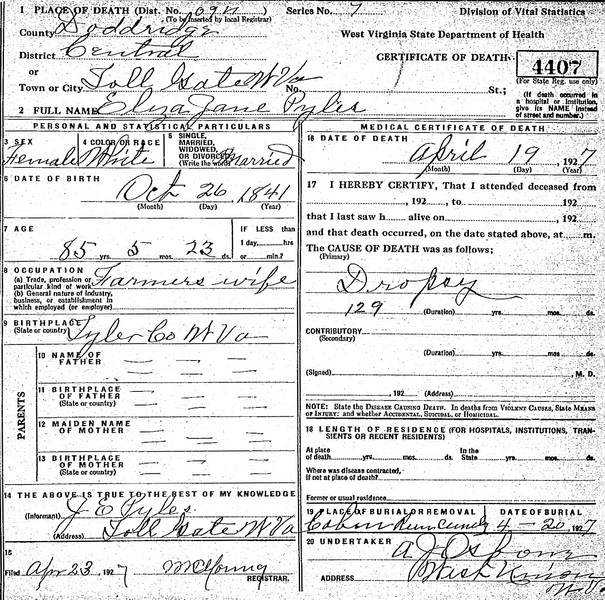 1 PLACE OF DEATH (Dist. No.
(To be inserted by local Registrar)
Series No. 7
Division of Vital Statistics
County Doddridge
West Virginia State Department of Health
District Central
CERTIFICATE OF DEATH
4407
(For State Reg. use only)
or
Town or City Toll Gate W Va No. St.;
(If death occurred in a hospital or institution, give its NAME instead of street and number.)
2 FULL NAME Eliza Jane Pyles
PERSONAL AND STATISTICAL PARTICULARS
3 SEX
Female
4 COLOR OR RACE
White
5 SINGLE,
MARRIED,
WIDOWED,
OR DIVORCED
(Write the word) Married
6 DATE OF BIRTH
Oct 26, 1841
(Month) (Day) (Year)
7 AGE
85 yrs. 5 mos. 23 ds.
IF LESS than
1 day, hrs
or min.?
8 OCCUPATION
(a) Trade, profession or
particular kind of work
Farmers wife
(b) General nature of industry,
business, or establishment in
which employed (or employer)
9 BIRTHPLACE
(State or country) Tyler Co W Va
PARENTS
10 NAME OF
FATHER
11 BIRTHPLACE
OF FATHER
(State or country)
12 MAIDEN NAME
OF MOTHER
13 BIRTHPLACE
OF MOTHER
(State or country)
14 THE ABOVE IS TRUE TO THE BEST OF MY KNOWLEDGE
(Informant) J E Pyles
(Address) Toll Gate W Va
15
Filed Apr 23, 1927
REGISTRAR.
MEDICAL CERTIFICATE OF DEATH
16 DATE OF DEATH
April 19, 1927
(Month) (Day) (Year)
17 I HEREBY CERTIFY, That I attended deceased from
, 192 , to , 192
that I last saw h alive on , 192
and that death occurred, on the date stated above, at m.
The CAUSE OF DEATH was as follows;
(Primary)
Dropsy
129
(Duration) yrs. mos. ds.
CONTRIBUTORY
(Secondary)
(Duration) yrs. mos. ds.
(Signed) , M. D.
, 192 (Address)
NOTE: State the DISEASE CAUSING DEATH. In deaths from VIOLENT CAUSES, State MEANS
OF INJURY: and whether ACCIDENTAL, SUICIDAL or HOMICIDAL.
18 LENGTH OF RESIDENCE (FOR HOSPITALS, INSTITUTIONS, TRAN-
SIENTS OR RECENT RESIDENTS)
At place
of death yrs. mos. ds.
In the
State yrs. mos. ds.
Where was disease contracted,
If not at place of death?
Former or usual residence
19 PLACE OF BURIAL OR REMOVAL
DATE OF BURIAL
4-20, 1927
20 UNDERTAKER
A J Osborn
ADDRESS
West Union
W Va